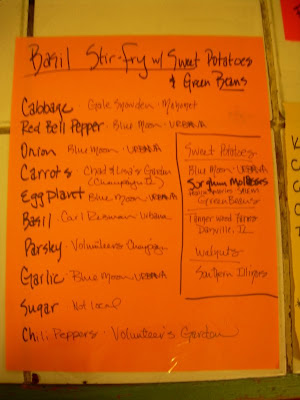 Basil Stir-fry w/ Sweet Potatoes
& Green Beans
Cabbage Gale Snowden · Mahomet
Red Bell Pepper · Blue Moon · URBANA
Onion Blue Moon · URBANA
Carrots Chad & Lona's Garden
(Champaign IL)
Eggplant Blue Moon URBANA
Basil · Carl Urbana
Parsley · Volunteers Champaign
Garlic · Blue Moon · URBANA
Sugar Not local
Chili Peppers · Volunteer's Garden
Sweet Potatoes
Blue Moon · URBANA
Sorghum Molasses
Green Beans
Tanger wood Farms
Danville, IL
Walnuts
Southern Illinois